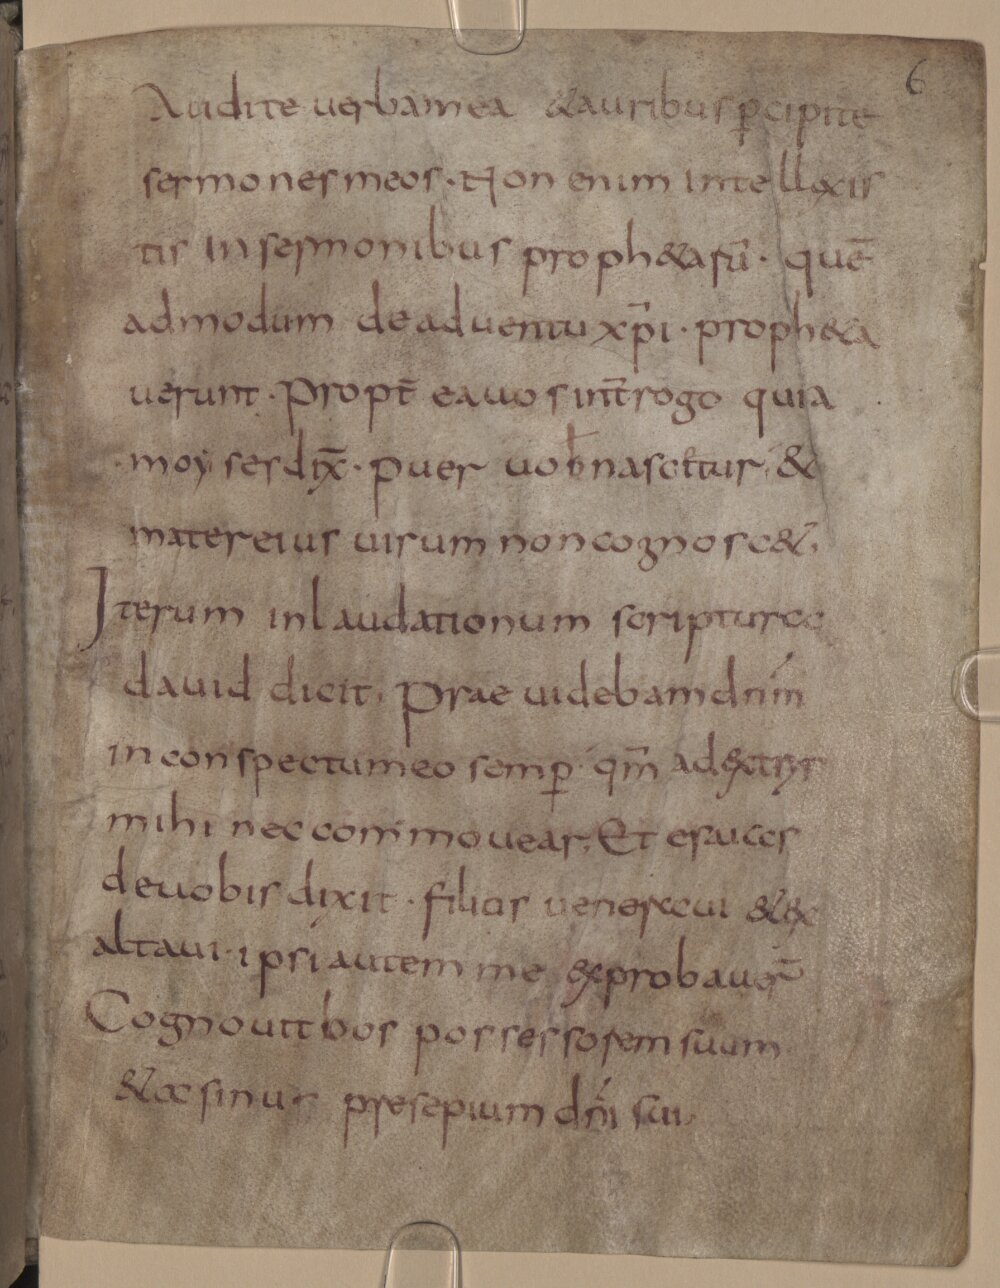 6
Audite uerba mea & auribus p̄cipite
sermones meos · Non enim intellexis
tis In sermonibus proph&arū · quē
admodum de aduentu xp̄i · proph&a
uerunt · Propt̄ ea uos int̄rogo quia
moyses dix̄ · puer uob nascetur, &
mater eius uirum non cognosc&,
Iterum in laudationum scripturae
dauid dicit, Prae uidebam dnm̄
in conspectu meo semp̄ · qm̄ ad&xtrys
mihi nec commouear, Et
de uobis dixit · filius uenerxcui & ex
altaui · ipsi autem me exprobauer̄
Cognouit bos possessorem suum
& asinus presepium dn̄i sui,